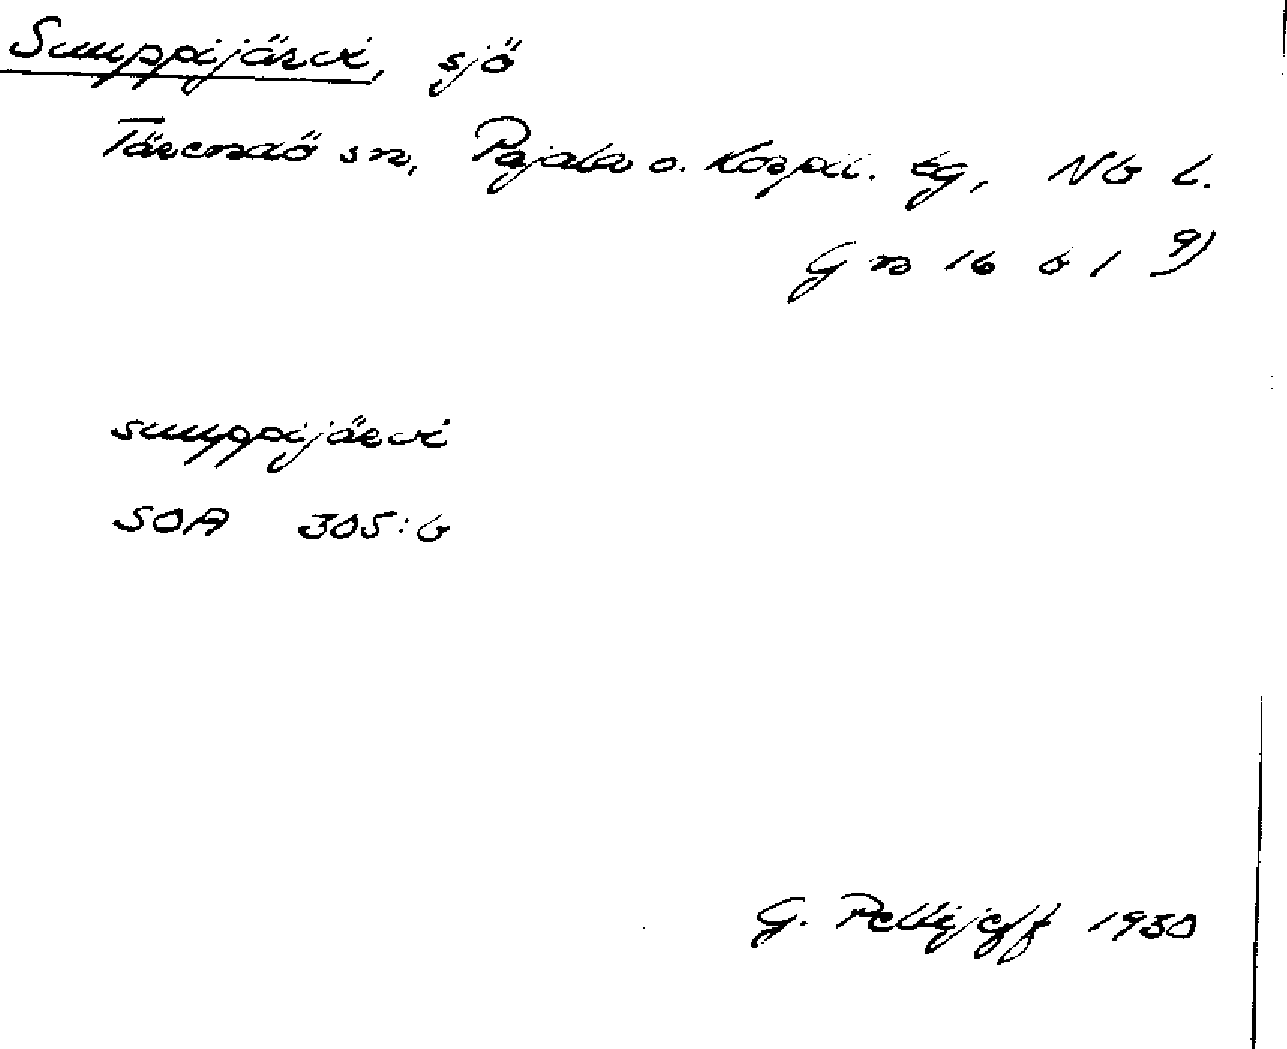 Sumppijärvi, sjö
Tärendö sn, Pajala o. Korpil. tg, Nb l.
G n 16 ö 1 9)
sumppijärvi
SOA 305:6
G. Pellijeff 1950